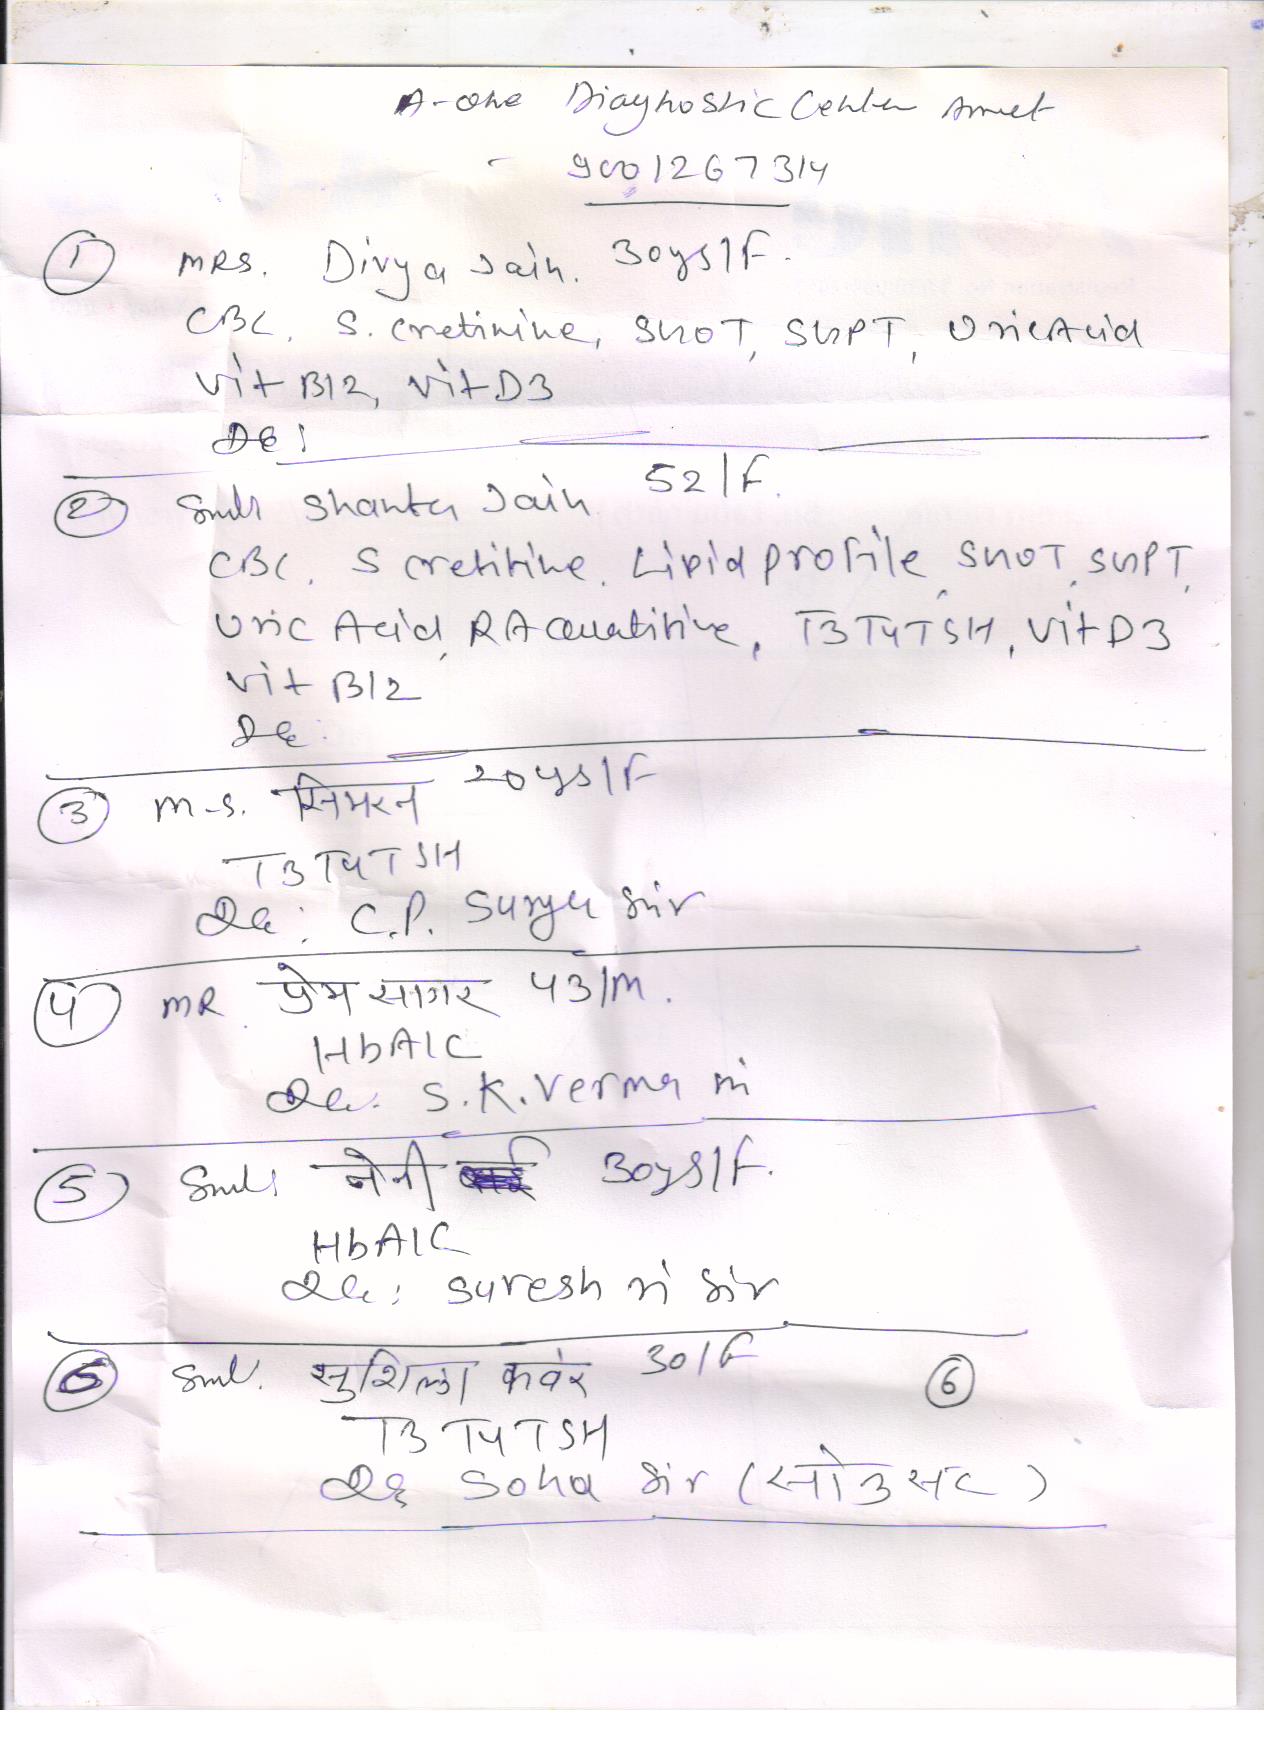 A-one Diagnostic Center Amet
9001267314
1 MRS. Divya Jain. 30ys/F.
CBC, S. cretinine, SGOT, SGPT, Uric Acid
Vit B12, Vit D3
Dr:
2 Smt. Shanta Jain 52/F.
CBC, S cretitine, Lipid profile, SGOT, SGPT,
Uric Acid, RA quatitive, T3 T4 TSH, Vit D3
Vit B12
Dr:
3 M-S. सिमरन 20ys/F
T3 T4 TSH
Dr: C.P. Surya Sir
4 MR. प्रेम सागर 43/M.
HbA1C
Dr. S.K. Verma
5 Smt. नैनी 30ys/F.
HbA1C
Dr: Suresh Sir
6 Smt. सुशिला कवंर 30/F 6
T3 T4 TSH
Dr Soha Sir